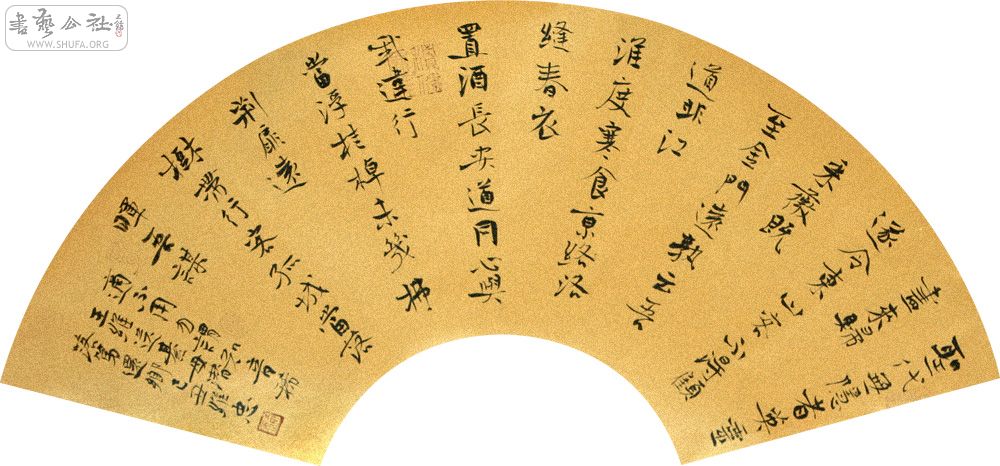 書藝公社
WWW.SHUFA.ORG
聖代無隱者英靈
盡來歸
遂令東山客不得顧
采薇既
至金門遠孰云吾
道非江
淮度寒食京洛
縫春衣
置酒長安道同心與
我違行
當浮桂棹未幾拂
荊扉遠
樹帶行客孤城當落
暉吾謀
適不用勿謂知音稀
王維送綦毋潛
落第還鄉